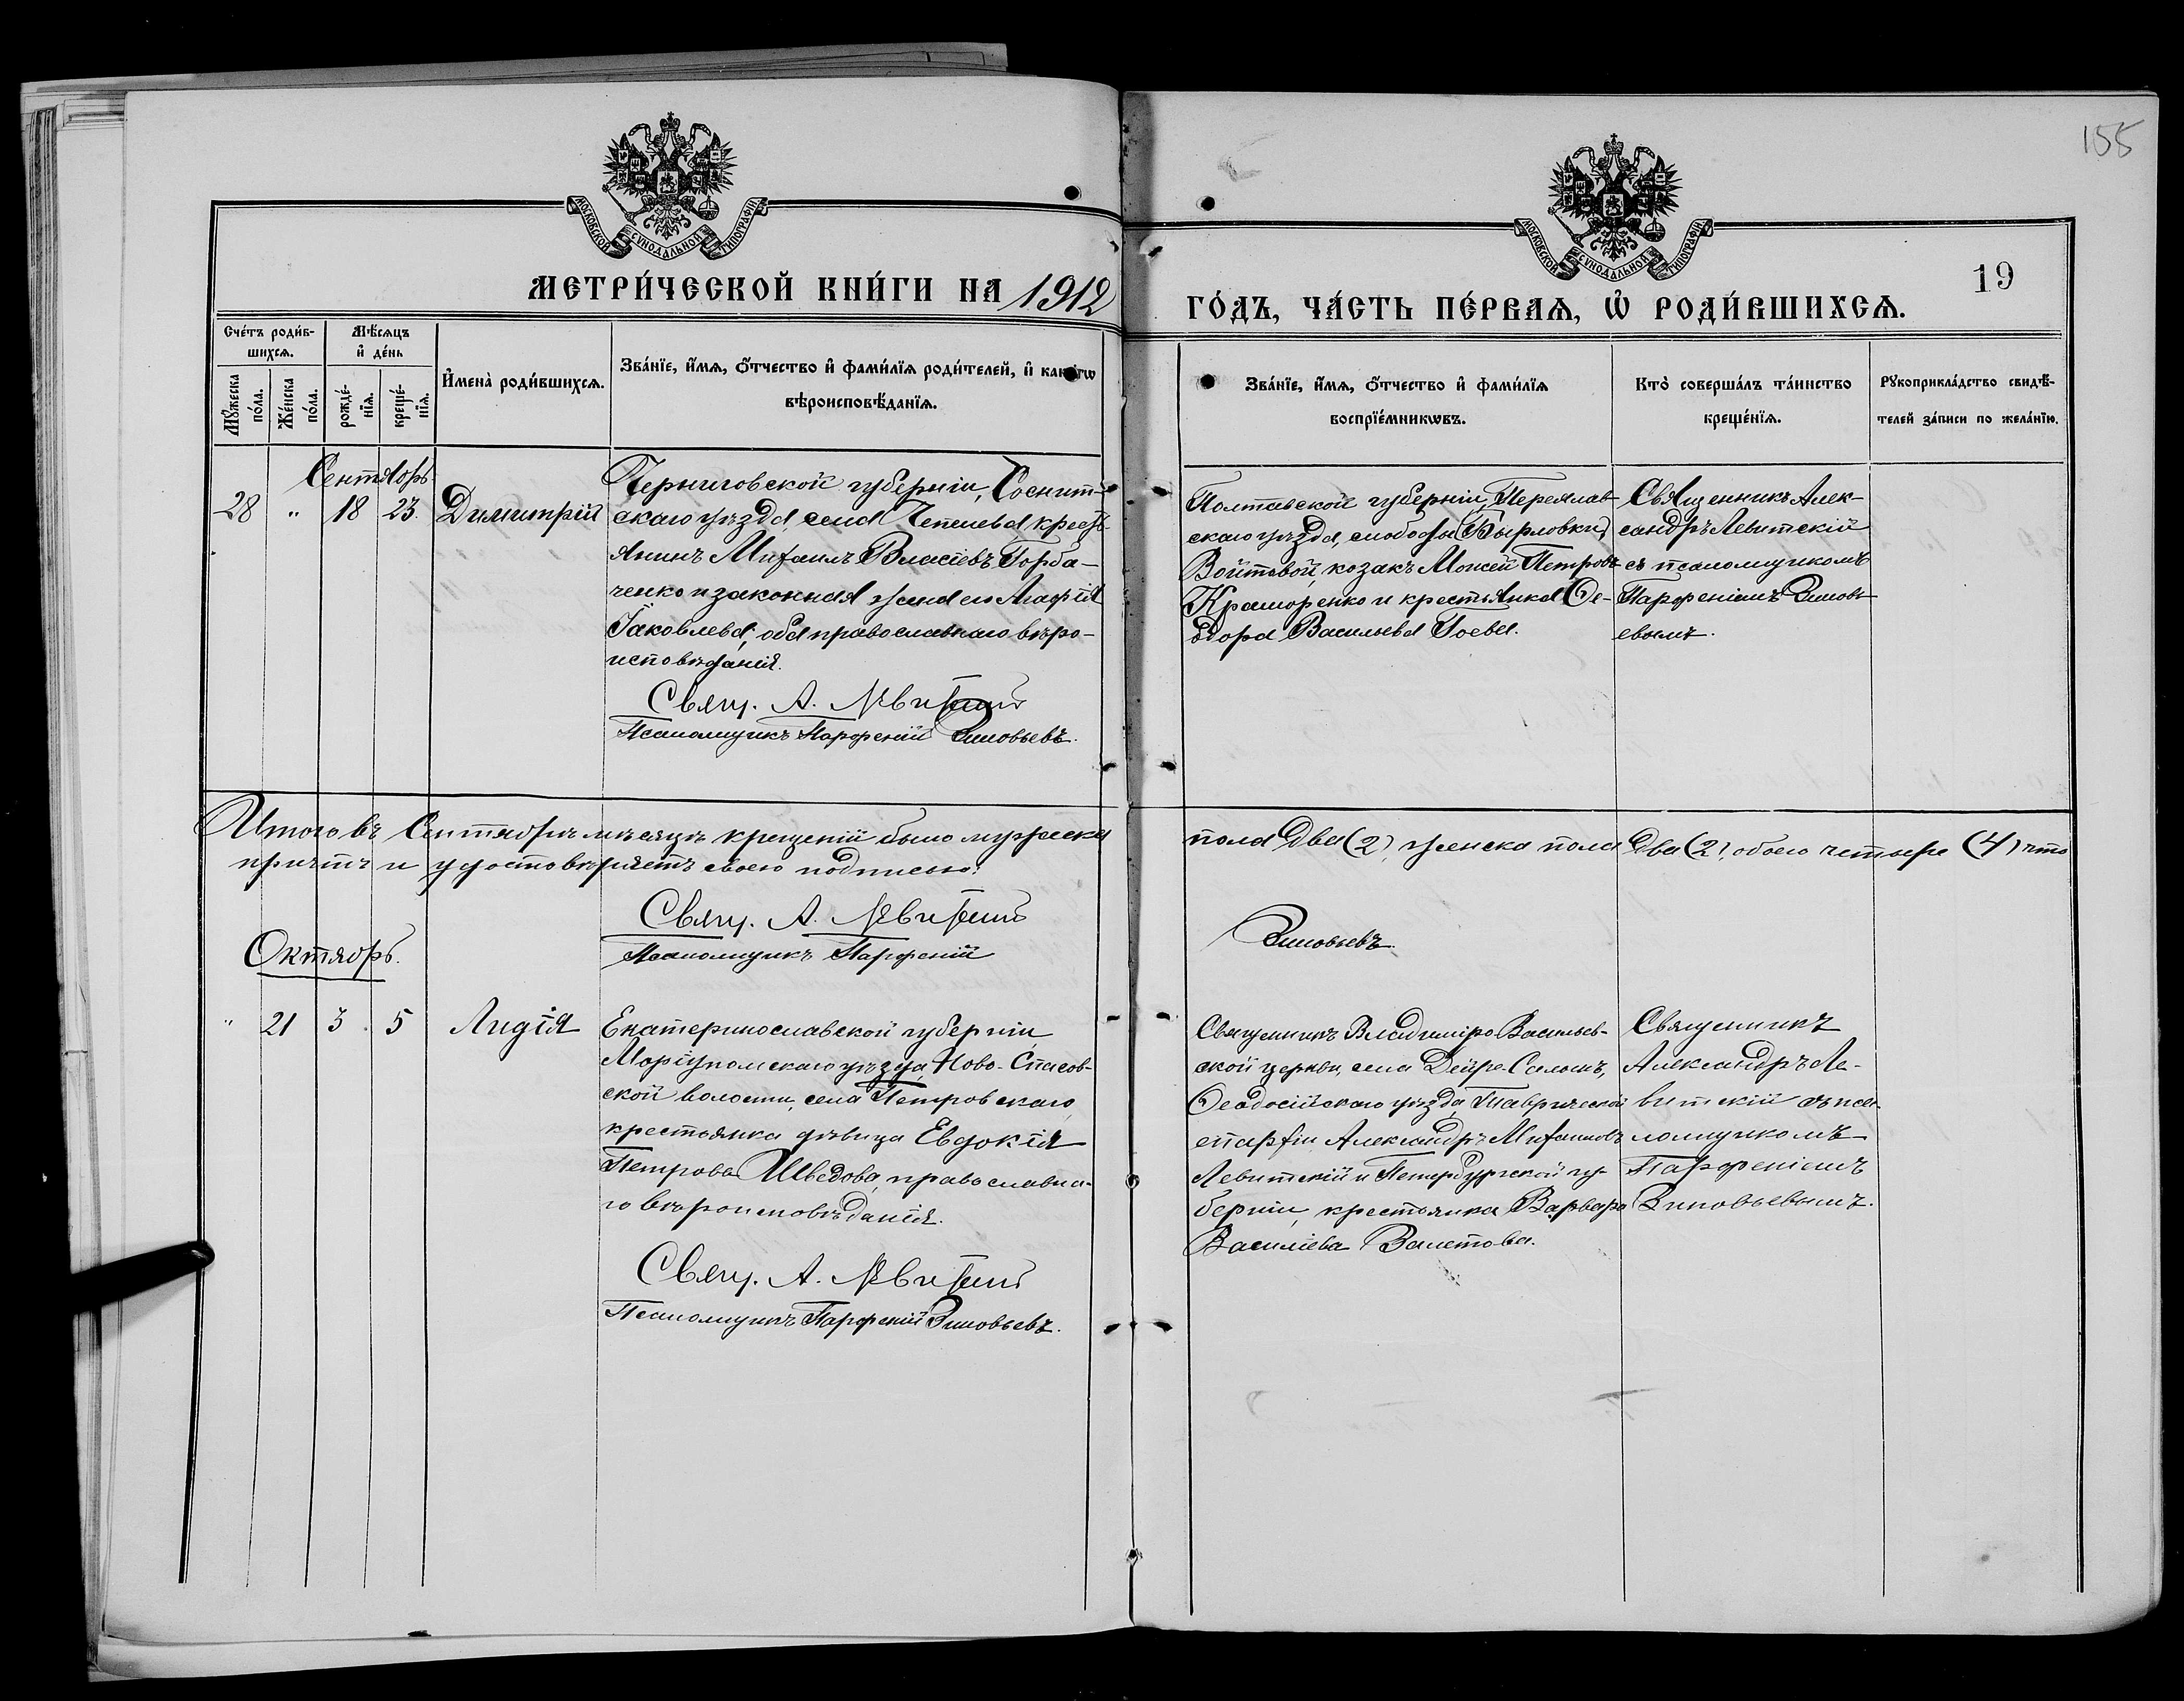 155
МОСКОВСКОЙ СѴНОДАЛЬНОЙ ТИПОГРАФІИ
МОСКОВСКОЙ СѴНОДАЛЬНОЙ ТИПОГРАФІИ
МЕТРИ́ЧЕСКОЙ КНИ́ГИ НА 1912
ГО́ДЪ, ЧА́СТЬ ПЕ́РВАѦ, Ѽ РОДИ́ВШИХСѦ.
19
Сче́тъ роди́в-
шихсѧ.
Мѣ́сѧцъ
и҆ де́нь
Мꙋ́жеска
по́ла.
Же́нска
по́ла.
рожде́-
нїѧ.
креще́-
нїѧ.
И҆мена̀ роди́вшихсѧ.
Зва́нїе, и҆́мѧ, ѻ҆́тчество и҆ фами́лїѧ роди́телей, и҆ како́гѡ
вѣроисповѣ́данїѧ.
Зва́нїе, и҆́мѧ, ѻ҆́тчество и҆ фами́лїѧ
воспрїе́мникѡвъ.
Кто̀ соверша́лъ та́инство
креще́нїѧ.
Рꙋкоприкла́дство свидѣ́-
телей за́писи по жела́нїю.
Сентябрь.
28 " 18 23. Димитрій
Черниговской губерніи, Сосниц-
каго уѣзда, села Чепелева крестъ-
янинъ Михаилъ Власіевъ Горба-
ченко и законная жена его Агафія
Іаковлева, оба православнаго вѣро-
исповѣданія.
Свящ. А. Левитскій
Псаломщикъ Парфеній Зиновьевъ.
Полтавской губерніи, Переяслав-
скаго уѣзда, слободы (Бырловки)
Войтовой, козакъ Моисей Петровъ
Краморенко и крестьянка Ѳе-
одора Васильева Гоева.
Священникъ Алек-
сандръ Левитскій
съ псаломщикомъ
Парфеніемъ Зиновь-
евымъ.
Итого въ Сентябрѣ мѣсяцѣ крещеній было мужеска
пола два (2), женска пола два (2), обоего четыре (4) что
причтъ и удостовѣряетъ своею подписью:
Свящ. А. Левитскій
Псаломщикъ Парфеній
Зиновьевъ.
Октябрь.
" 21 3. 5 Лидія
Екатеринославской губерніи,
Маріупольскаго уѣзда, Ново-Спасов-
ской волости, села Петровскаго
крестьянка дѣвица Евдокія
Петрова Шведова, православна-
го вѣроисповѣданія.
Свящ. А. Левитскій
Псаломщикъ Парфеній Зиновьевъ.
Священникъ Владиміро-Васильев-
ской церкви, села Дейре-Салынъ,
Ѳеодосійскаго уѣзда, Таврической
епархіи Александръ Михаиловъ
Левитскій и Петербургской гу-
берніи, крестьянка Варвара
Василіева
Священникъ
Александръ Ле-
витскій съ пса-
ломщикомъ
Парфеніемъ
Зиновьевымъ.